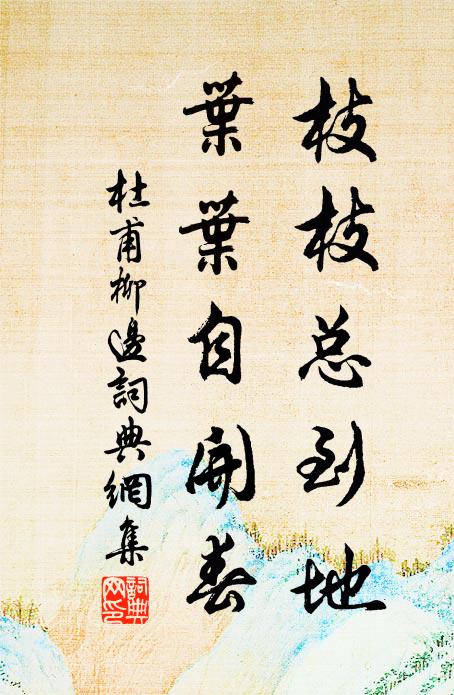 枝枝总到地
葉葉自開春
杜甫柳邊詞典網集
詞典